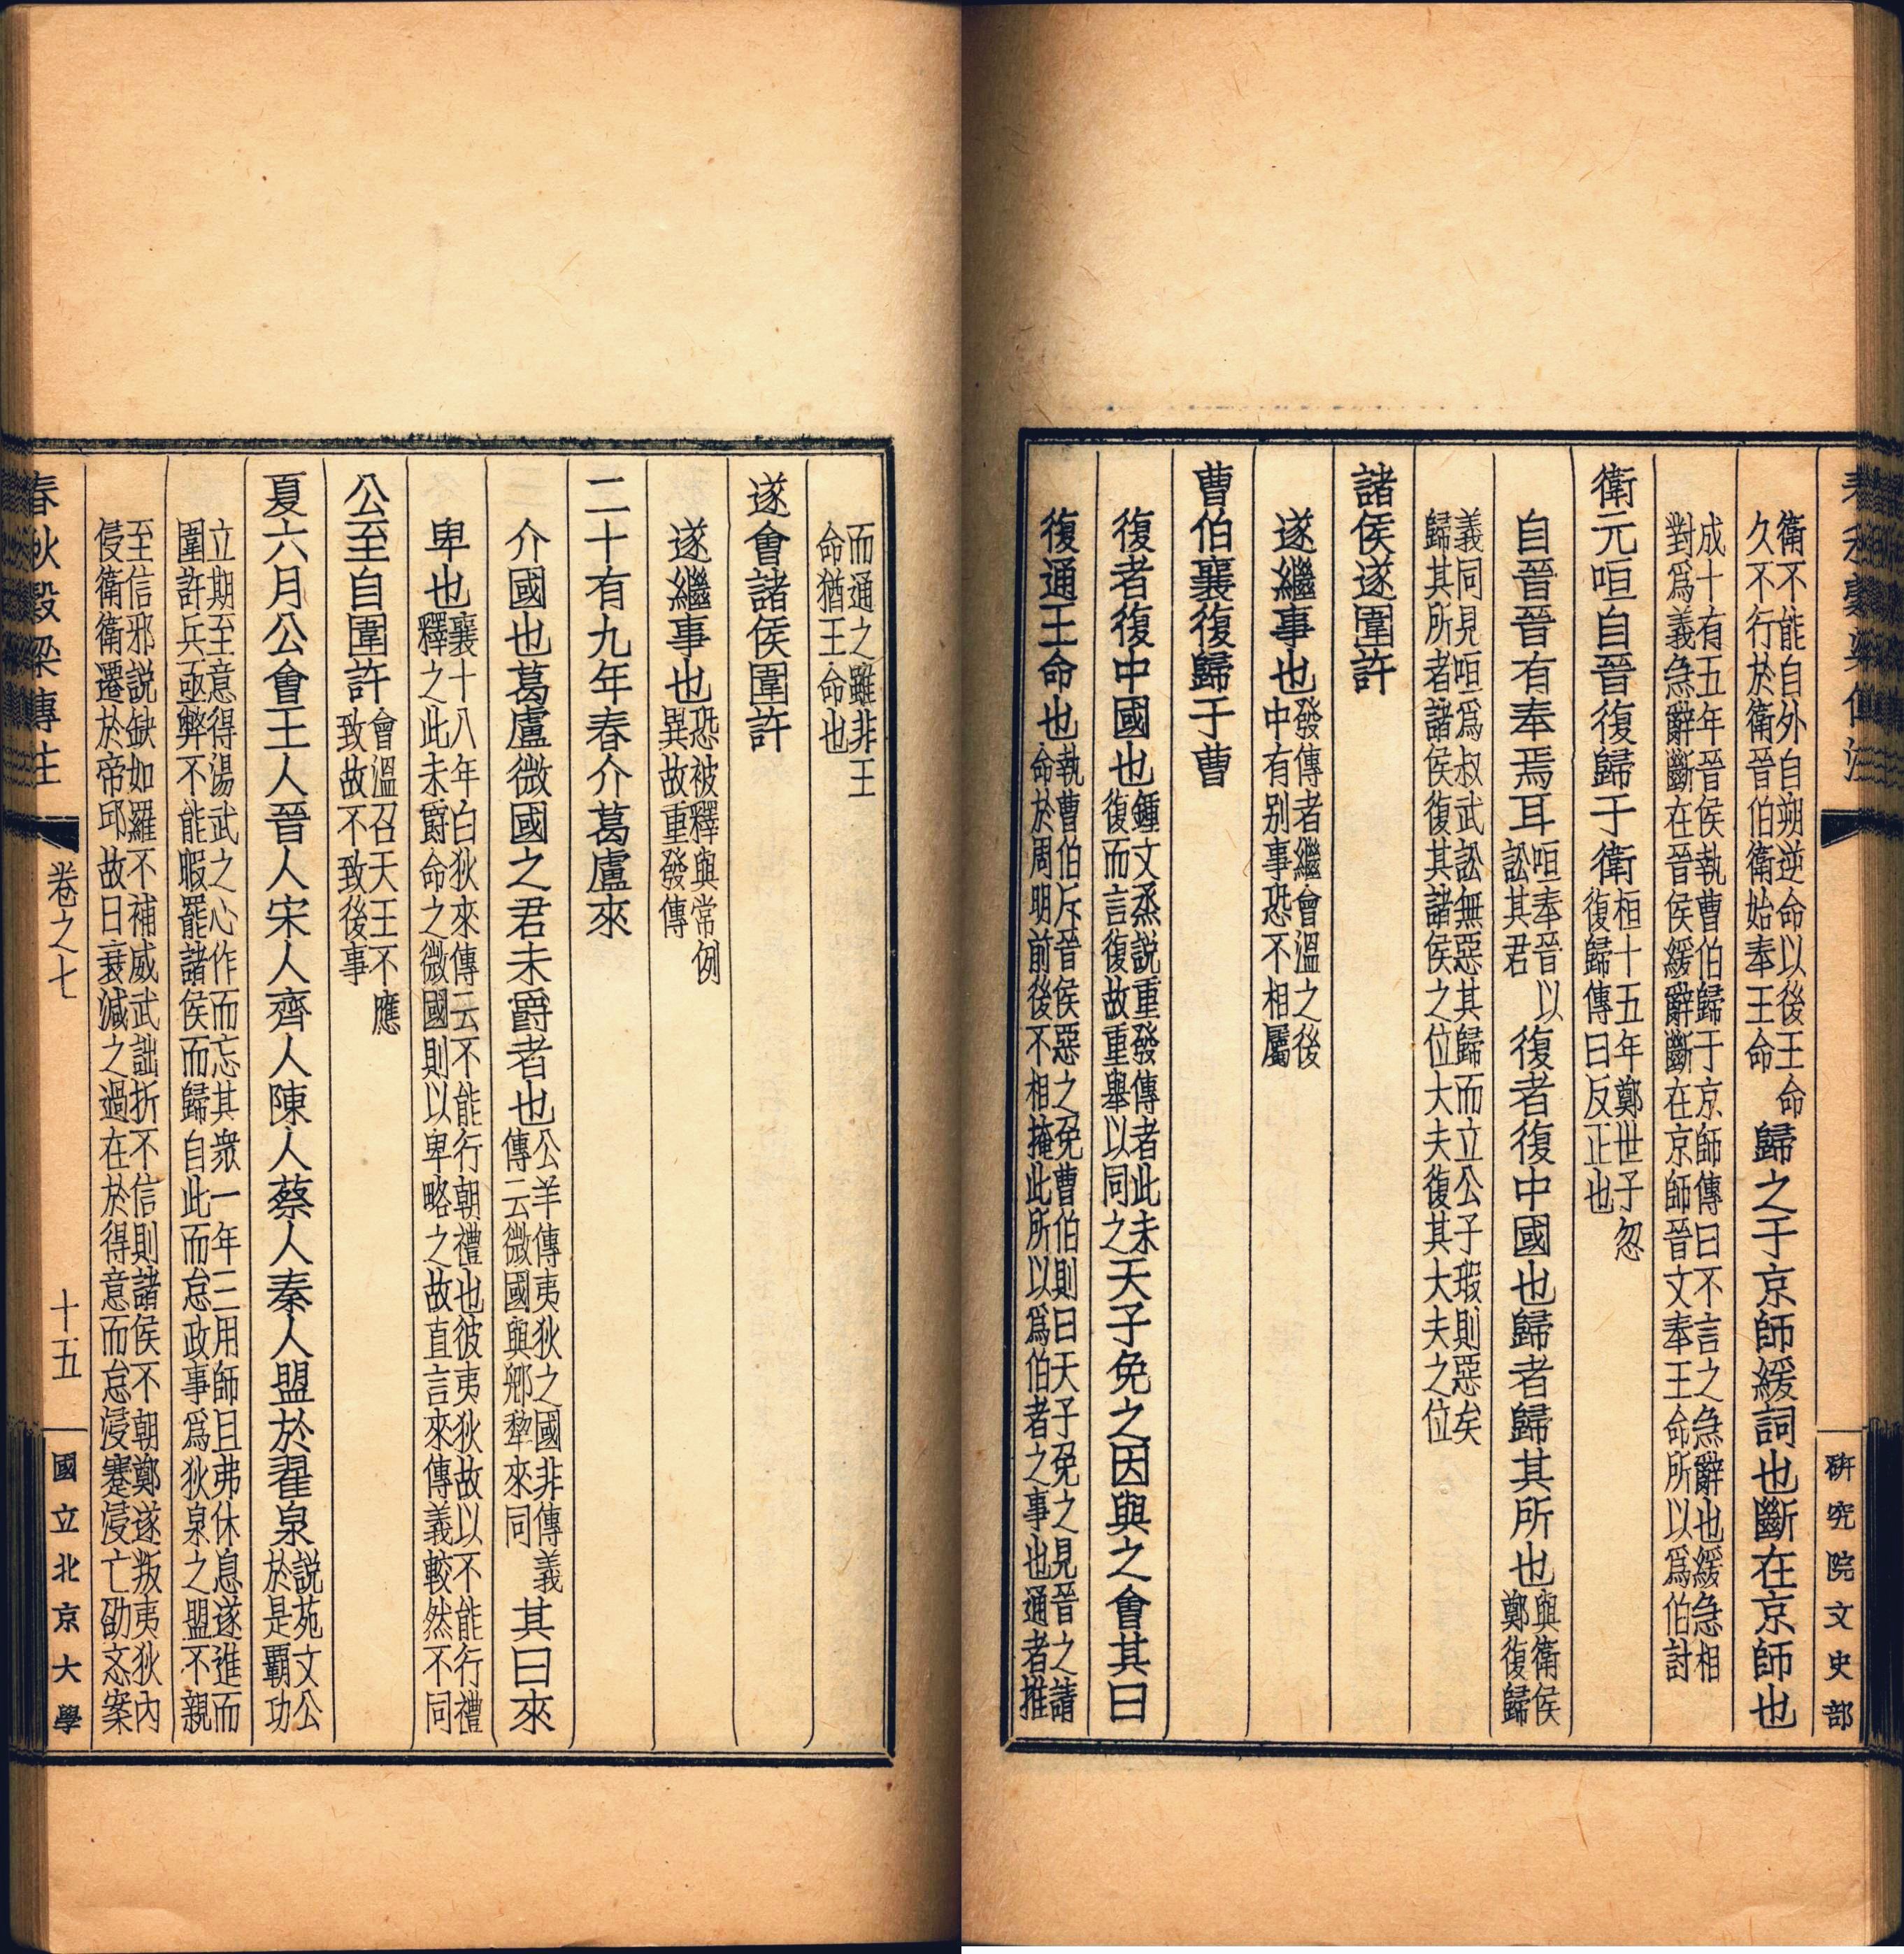 研究院文史部
衛不能自外自朔逆命以後王命久不行於衛晉伯衛始奉王命歸之于京師緩詞也斷在京師也
成十有五年晉侯執曹伯歸于京師傳曰不言之急辭也緩急相
對爲義急辭斷在晉侯緩辭斷在京師晉文奉王命所以爲伯討
衛元咺自晉復歸于衛桓十五年鄭世子忽復歸傳曰反正也
自晉晉有奉焉耳咺奉晉以訟其君復者復中國也歸者歸其所也與衛侯鄭復歸
義同見咺爲叔武訟無惡其歸而立公子瑕則惡矣
歸其所者諸侯復其諸侯之位大夫復其大夫之位
諸侯遂圍許
遂繼事也發傳者繼會溫之後中有别事恐不相屬
曹伯襄復歸于曹
復者復中國也鍾文烝説重發傳者此未復而言復故重舉以同之天子免之因與之會其曰
復通王命也執曹伯斥晉侯惡之免曹伯則曰天子免之見晉之請命於周明前後不相掩此所以爲伯者之事也通者推
而通之雖非王
命猶王命也
遂會諸侯圍許
遂繼事也恐被釋與常例異故重發傳
二十有九年春介葛盧來
介國也葛盧微國之君未爵者也公羊傳夷狄之國非傳義傳云微國與郳犂來同其曰來
卑也襄十八年白狄來傳云不能行朝禮也彼夷狄故以不能行禮釋之此未爵命之微國則以卑略之故直言來傳義較然不同
公至自圍許會溫召天王不應致故不致後事
夏六月公會王人晉人宋人齊人陳人蔡人秦人盟於翟泉説苑文公於是霸功
立期至意得湯武之心作而忘其衆一年三用師且弗休息遂進而
圍許兵亟弊不能暇罷諸侯而歸自此而怠政事爲狄泉之盟不親
至信邪説缺如羅不補威武詘折不信則諸侯不朝鄭遂叛夷狄內
侵衛衛遷於帝邱故曰衰滅之過在於得意而怠浸蹇浸亡劭忞案
春秋穀梁傳注
卷之七
十五
國立北京大學